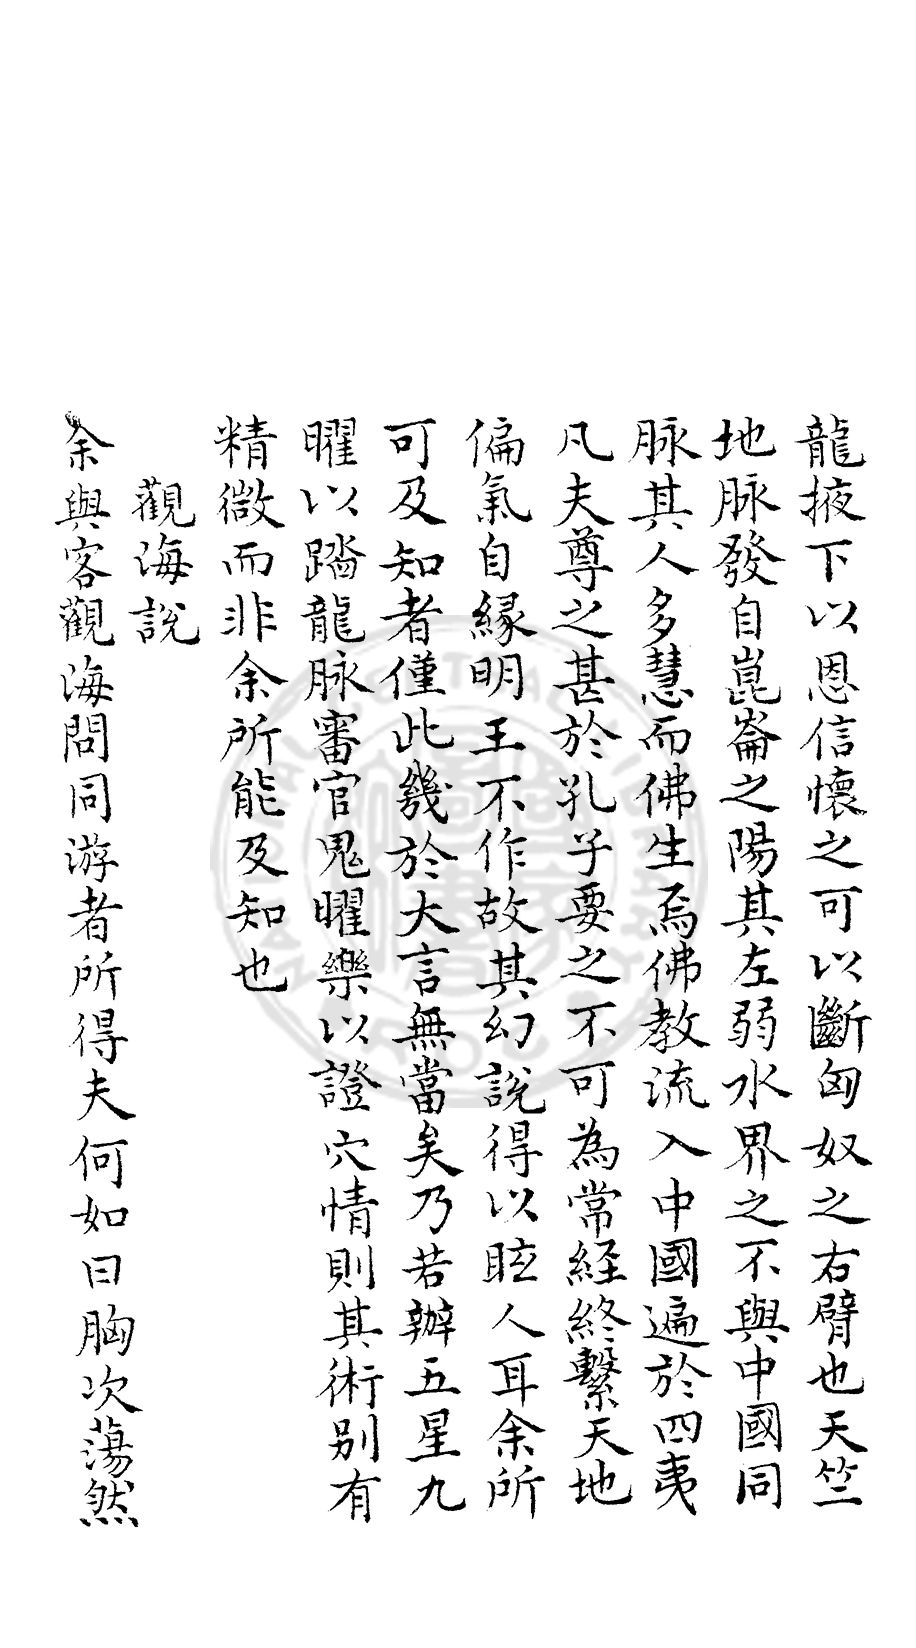 龍掖下以恩信懷之可以斷匈奴之右臂也天竺
地脉發自崑崙之陽其左弱水界之不與中國同
脉其人多慧而佛生焉佛教流入中國遍於四夷
凡夫尊之甚於孔子要之不可為常経終繫天地
偏氣自縁明王不作故其幻說得以眩人耳余所
可及知者僅此幾於大言無當矣乃若辦五星九
曜以踏龍脉審官鬼曜樂以證穴情則其術別有
精微而非余所能及知也
觀海說
余與客觀海問同游者所得夫何如曰胸次蕩然